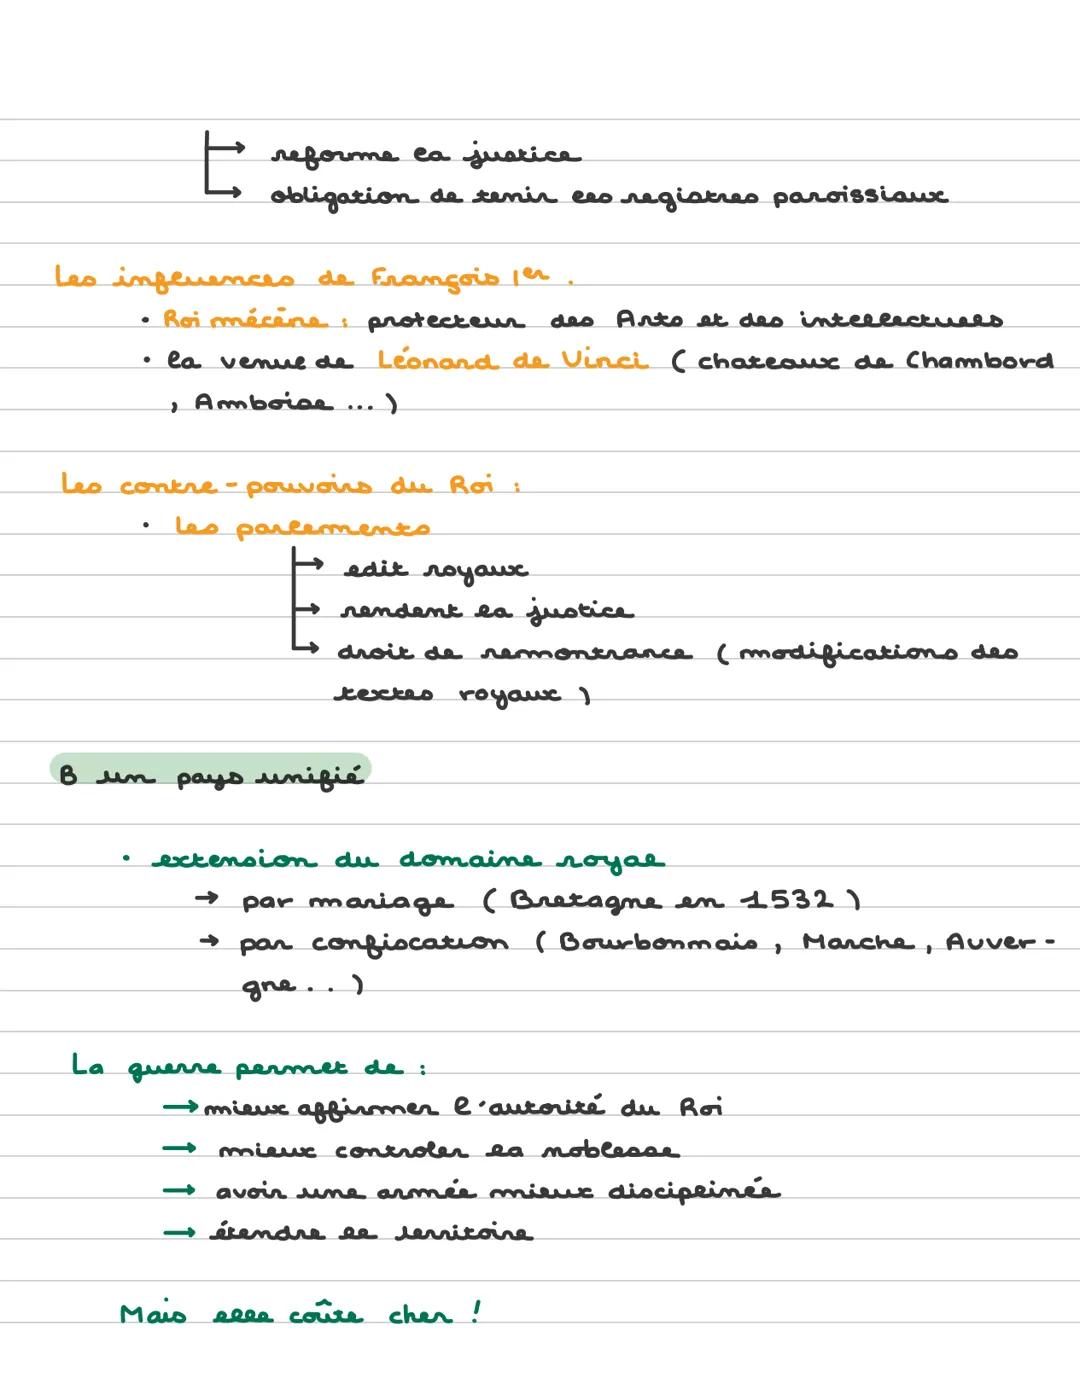 reforme la justice
obligation de tenir les registres paroissiaux
Les influences de François 1er .
• Roi mécène : protecteur des Arts et des intellectuels
• la venue de Léonard de Vinci ( chateaux de Chambord
, Amboise ... )
Les contre - pouvoirs du Roi :
• les parlements
edit royaux
rendent la justice
droit de remontrance ( modifications des
textes royaux )
B un pays unifié
• extension du domaine royal
→ par mariage ( Bretagne en 1532 )
→ par confiscation ( Bourbonnais , Marche , Auver -
gne . . )
La guerre permet de :
→ mieux affirmer l'autorité du Roi
→ mieux controler la noblesse
→ avoir une armée mieux disciplinée
→ étendre le territoire
Mais elle coûte cher !